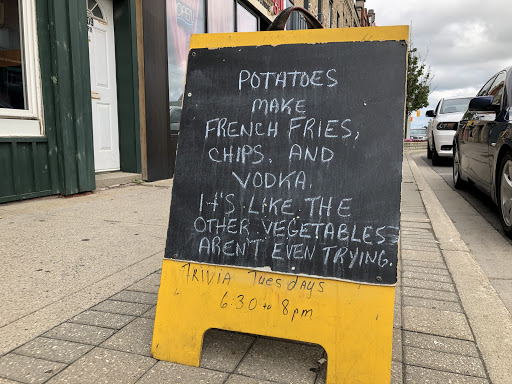 POTATOES
MAKE
FRENCH FRIES,
CHIPS, AND
VODKA.
IT'S LIKE THE
OTHER VEGETABLES
AREN'T EVEN TRYING.
TRIVIA TuesdAys
6:30 to 8pm